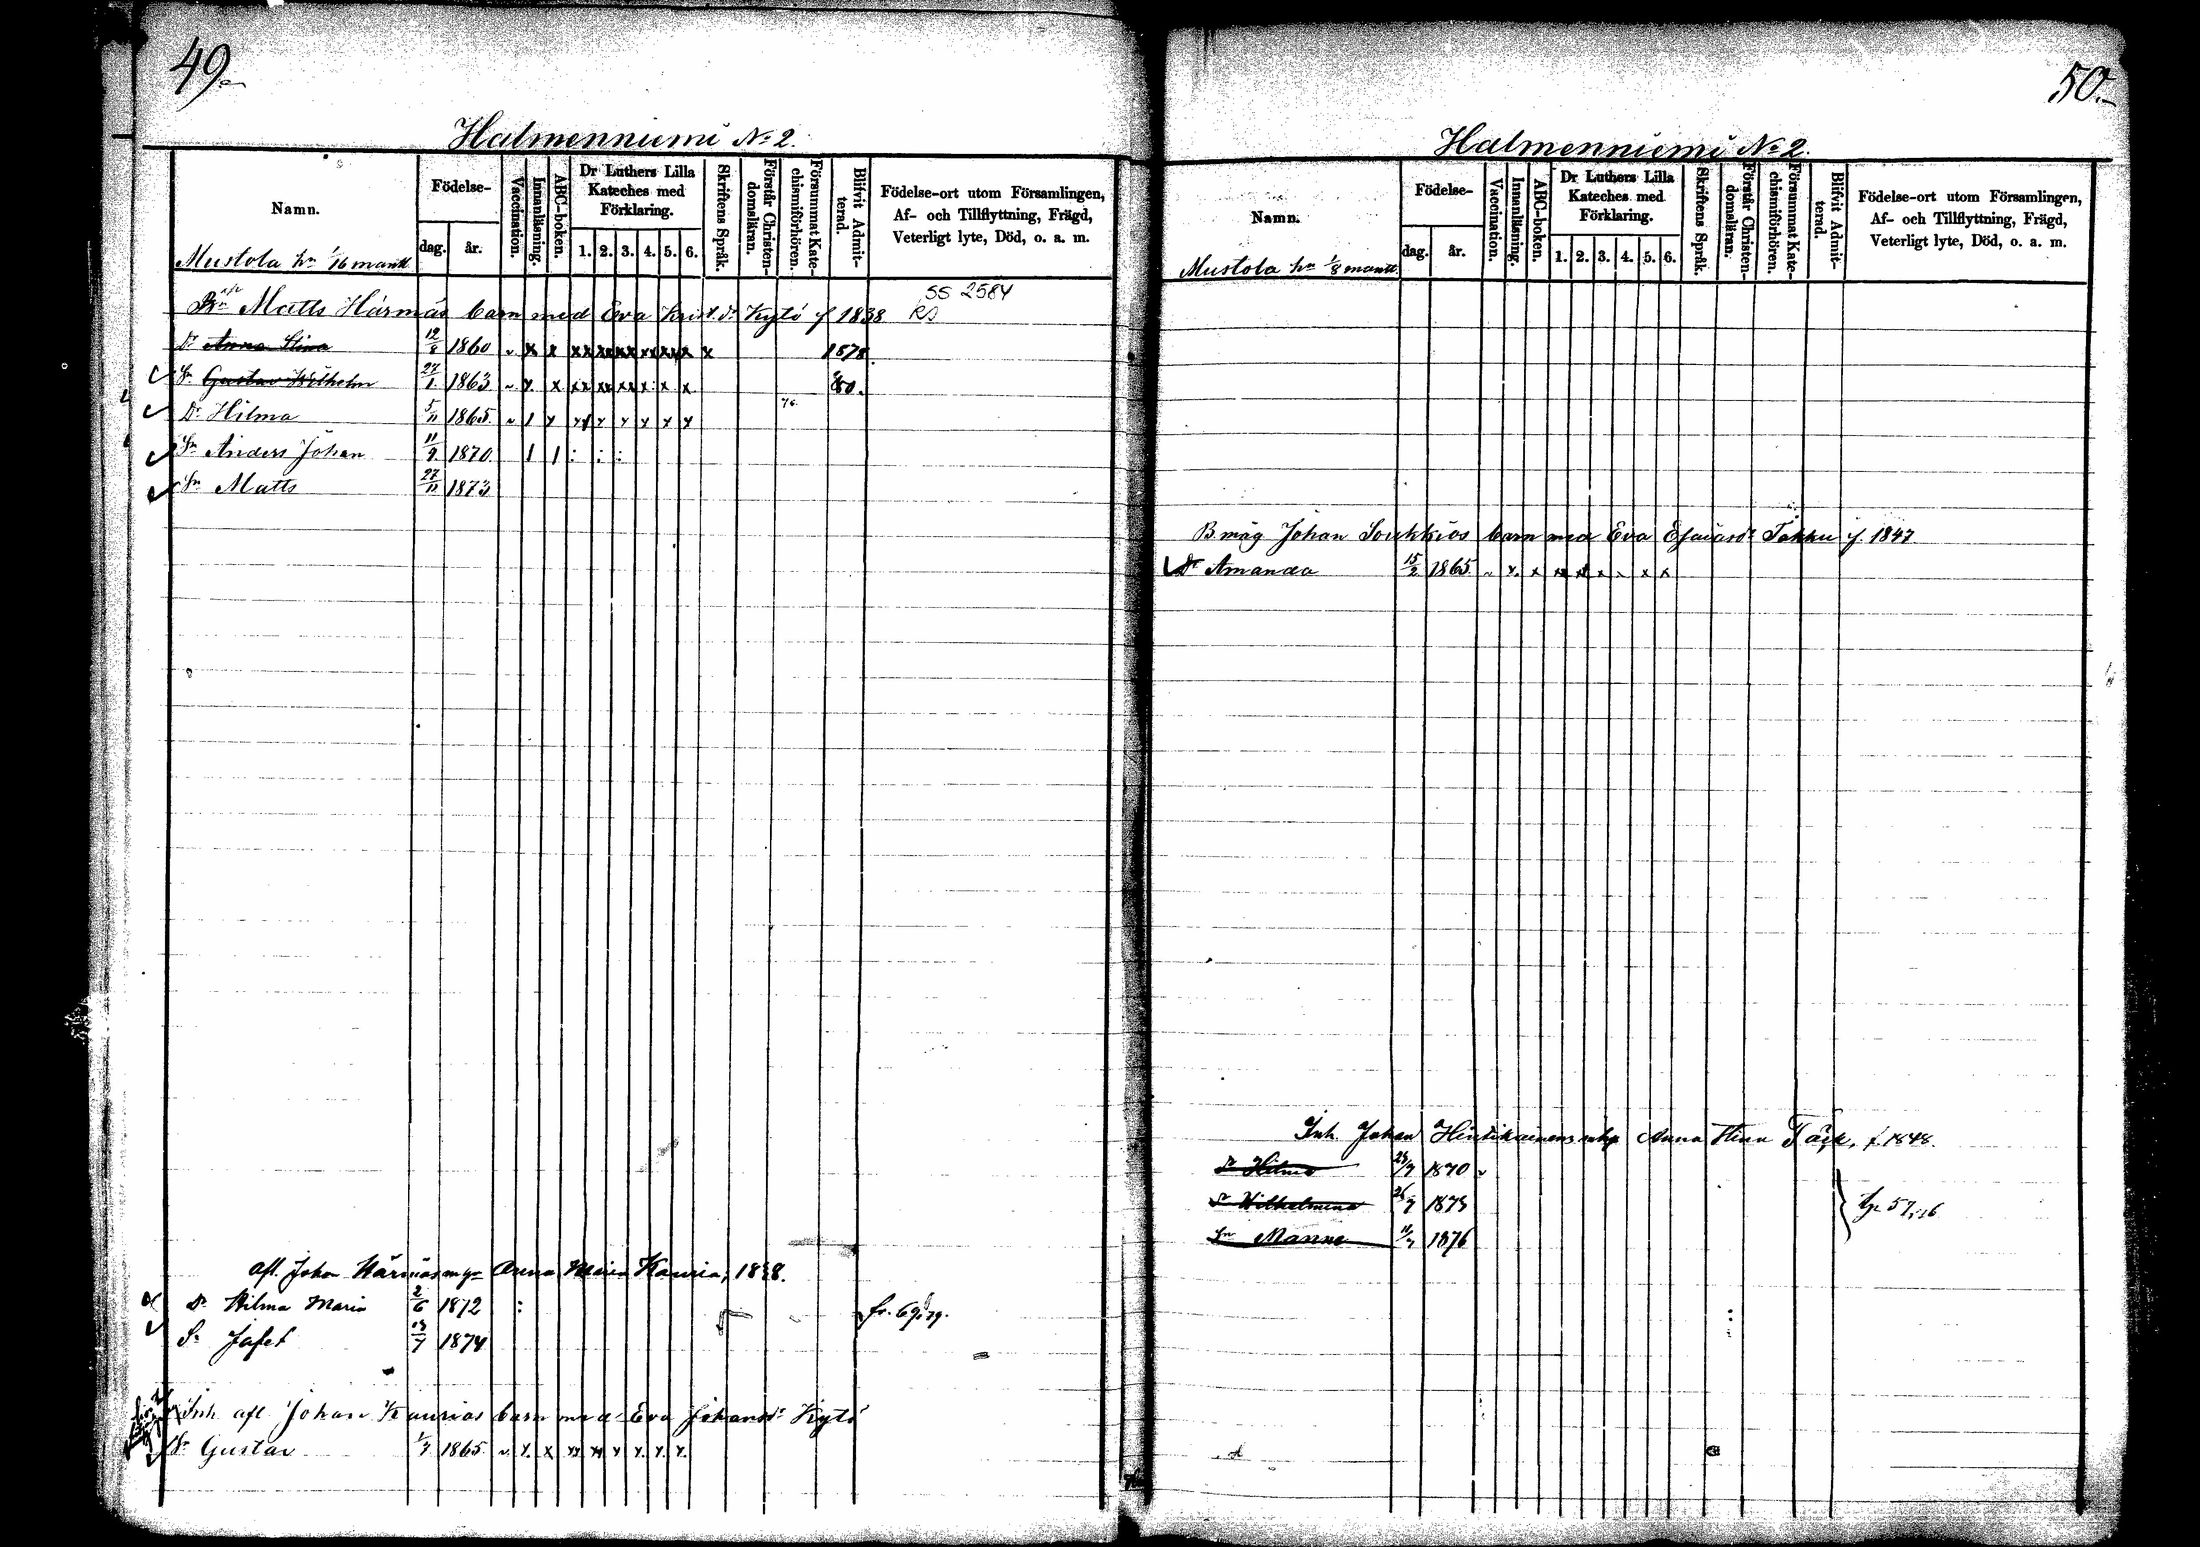 49.
Halmenniemi No 2.
Namn.
Födelse-
dag.
år.
Vaccination.
Innanläsning.
ABC-boken.
Dr Luthers Lilla
Kateches med
Förklaring.
1. 2. 3. 4. 5. 6.
Skriftens Språk.
Förstår Christen-
domsläran.
Försummat Kate-
chismiförhören.
Blifvit Admit-
terad.
Födelse-ort utom Församlingen,
Af- och Tillflyttning, Frägd,
Veterligt lyte, Död, o. a. m.
Mustola hn 1/16 mantl
SS 2584
Matts Härmäs barn med Eva Krist. dr Kytö f 1838
Dr Anna Stina 12/8 1860 1878
Sn Gustav Wilhelm 27/1 1863 80.
Dr Hilma 5/11 1865 76
Sn Anders Johan 11/9 1870
Sn Matts 27/11 1873
afl. Johan Härmäs Anna Maria Kauria, 1838.
Dr Hilma Maria 2/6 1872
Sn Jafet 13/7 1874
fr. 69
Inh. afl Johan Kaurias barn med Eva Johansdr Kytö
Sn Gustav 1/7 1865
50.
Halmenniemi No 2.
Namn.
Födelse-
dag.
år.
Vaccination.
Innanläsning.
ABC-boken.
Dr Luthers Lilla
Kateches med
Förklaring.
1. 2. 3. 4. 5. 6.
Skriftens Språk.
Förstår Christen-
domsläran.
Försummat Kate-
chismiförhören.
Blifvit Admit-
terad.
Födelse-ort utom Församlingen,
Af- och Tillflyttning, Frägd,
Veterligt lyte, Död, o. a. m.
Mustola hn 1/8 mantl.
B. måg Johan Soukkios barn med Eva Esaiasdr Takku f. 1847
Dr Amanda 15/2 1865
Inh. Johan Hintikainens Anna Stina Täck, f. 1848.
Dr Hilma 1870
Dr Wilhelmina 1873
Sn Manne 1876